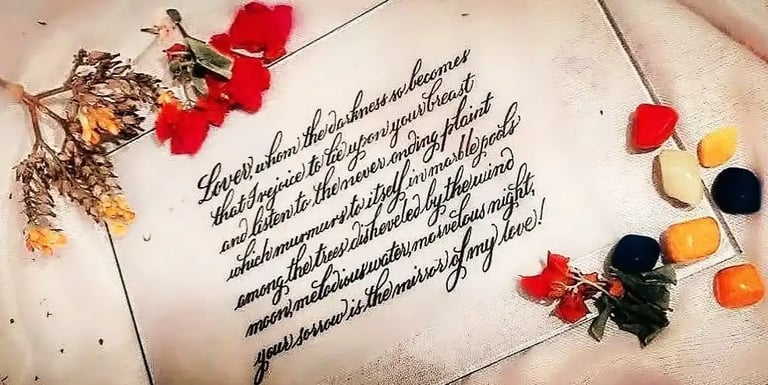 Lover, whom the darkness so becomes
that I rejoice to lie upon your breast
and listen to the never ending plaint
which murmurs to itself in marble pools
among the trees disheveled by the wind
moon, melodious water, marvelous night,
your sorrow is the mirror of my love!